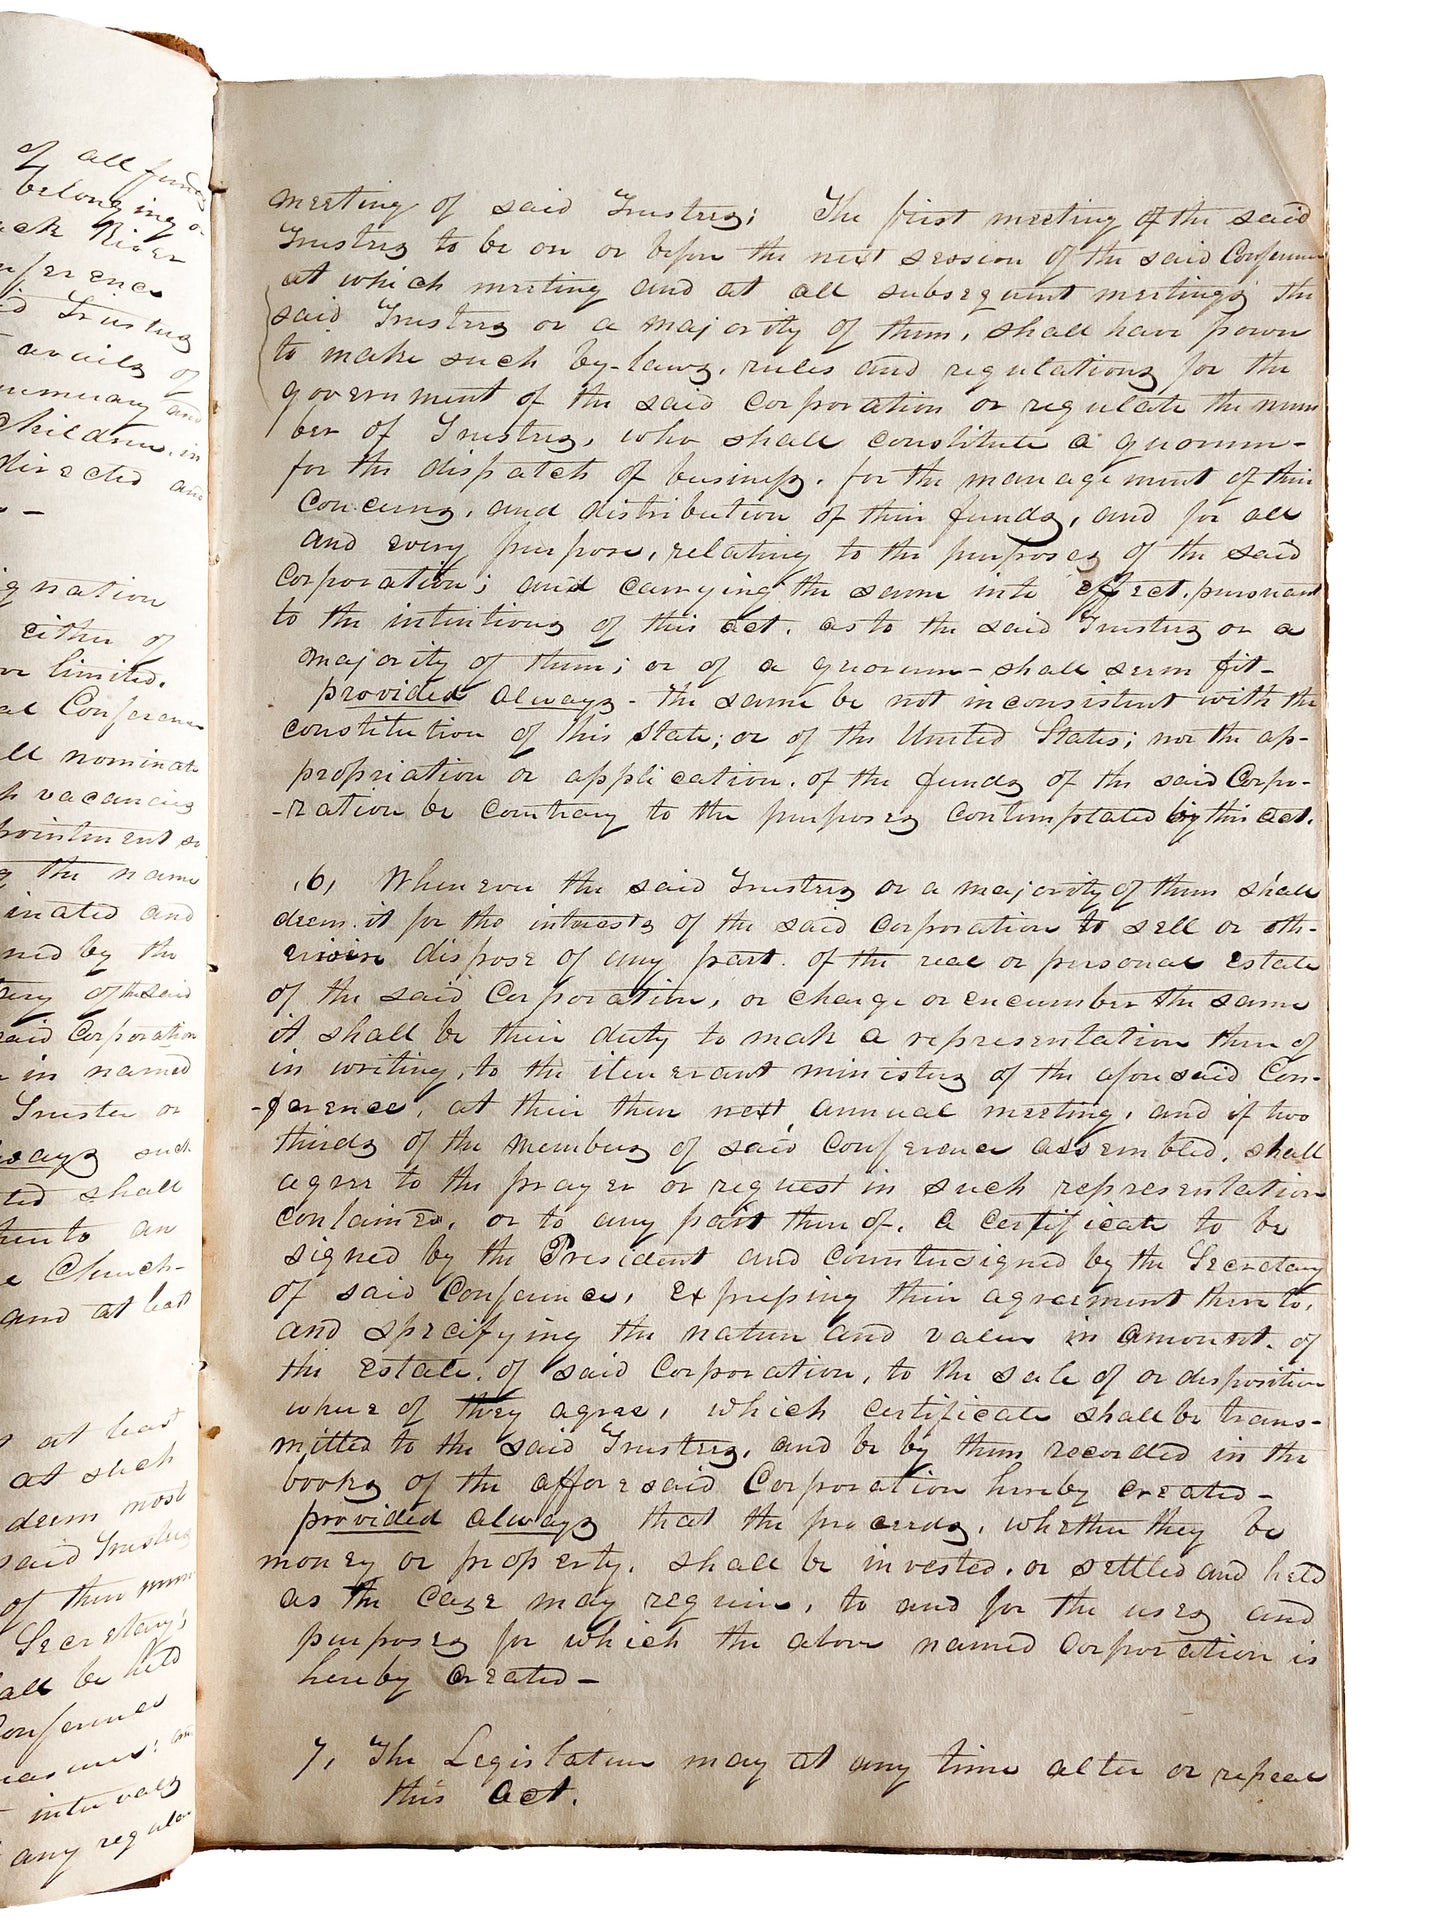 of all funds
belonging or
ck River
nference
id Trustees
avails of
numerary and
children, in
directed and
-
ignation
either of
ve limited.
al Conference
ll nominate
h vacancies
pointment so
g the name
inated and
ned by the
tary of the said
said Corporation
in named
Trustee or
ways such
ted shall
hereto an
e Church-
and at least
at least
at such
deem most
said Trustees
of their num
Secretary;
all be held
Conference
easurer: and
intervals
any regular
meeting of said Trustees; The first meeting of the said
Trustees to be on or before the next session of the said Conference
at which meeting and at all subsequent meetings the
said Trustees or a majority of them, shall have power
to make such by-laws, rules and regulations for the
government of the said Corporation or regulate the num
ber of Trustees, who shall constitute a quorum-
for the dispatch of business. for the management of their
Concerns, and distribution of their funds, and for all
and every purpose, relating to the purposes of the said
Corporation; and carrying the same into effect. pursuant
to the intentions of this act. as to the said Trustees or a
majority of them; or of a quorum- shall seem fit-
provided always- the same be not inconsistent with the
constitution of this State; or of the United States; nor the ap-
propriation or application. of the funds of the said Corpo-
-ration be contrary to the purposes contemplated by this act.
,6, Whenever the said Trustees or a majority of them shall
deem it for the interests of the said Corporation to sell or oth-
erwise dispose of any part of the real or personal estate
of the said Corporation, or charge or encumber the same
it shall be their duty to make a representation there of
in writing, to the itenerant ministers of the afore said Con-
-ference, at their then next annual meeting, and if two
thirds of the members of said Conference assembled, shall
agree to the prayer or request in such representation
contained, or to any part there of. a certificate to be
signed by the President and countersigned by the Secretary
of said Conference, expressing their agreement there to,
and specifying the nature and value in amount. of
the estate. of said Corporation, to the sale of or disposition
where of they agree, which certificate shall be trans-
mitted to the said Trustees, and be by them recorded in the
books of the afforesaid Corporation hereby created-
provided always that the proceeds, whether they be
money or property, shall be invested, or settled and held
as the case may require, to and for the uses and
purposes for which the above named Corporation is
hereby created-
7, The Legislature may at any time alter or repeal
this act.